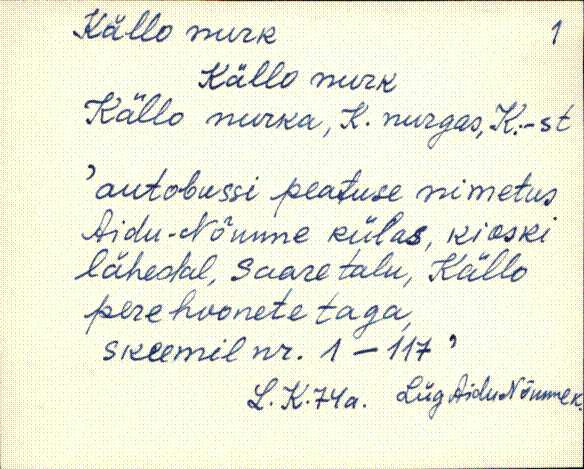 Källo nurk 1
Källo nurk
Källo nurka, K. nurgas, K.-st
'autobussi peatuse nimetus
Aidu-Nõmme külas, kioski
lähedal, Saare talu, Källo
pere hoonete taga,
skeemil nr. 1 – 117'
L. K. 74a. Lüg Aidu Nõmme k.